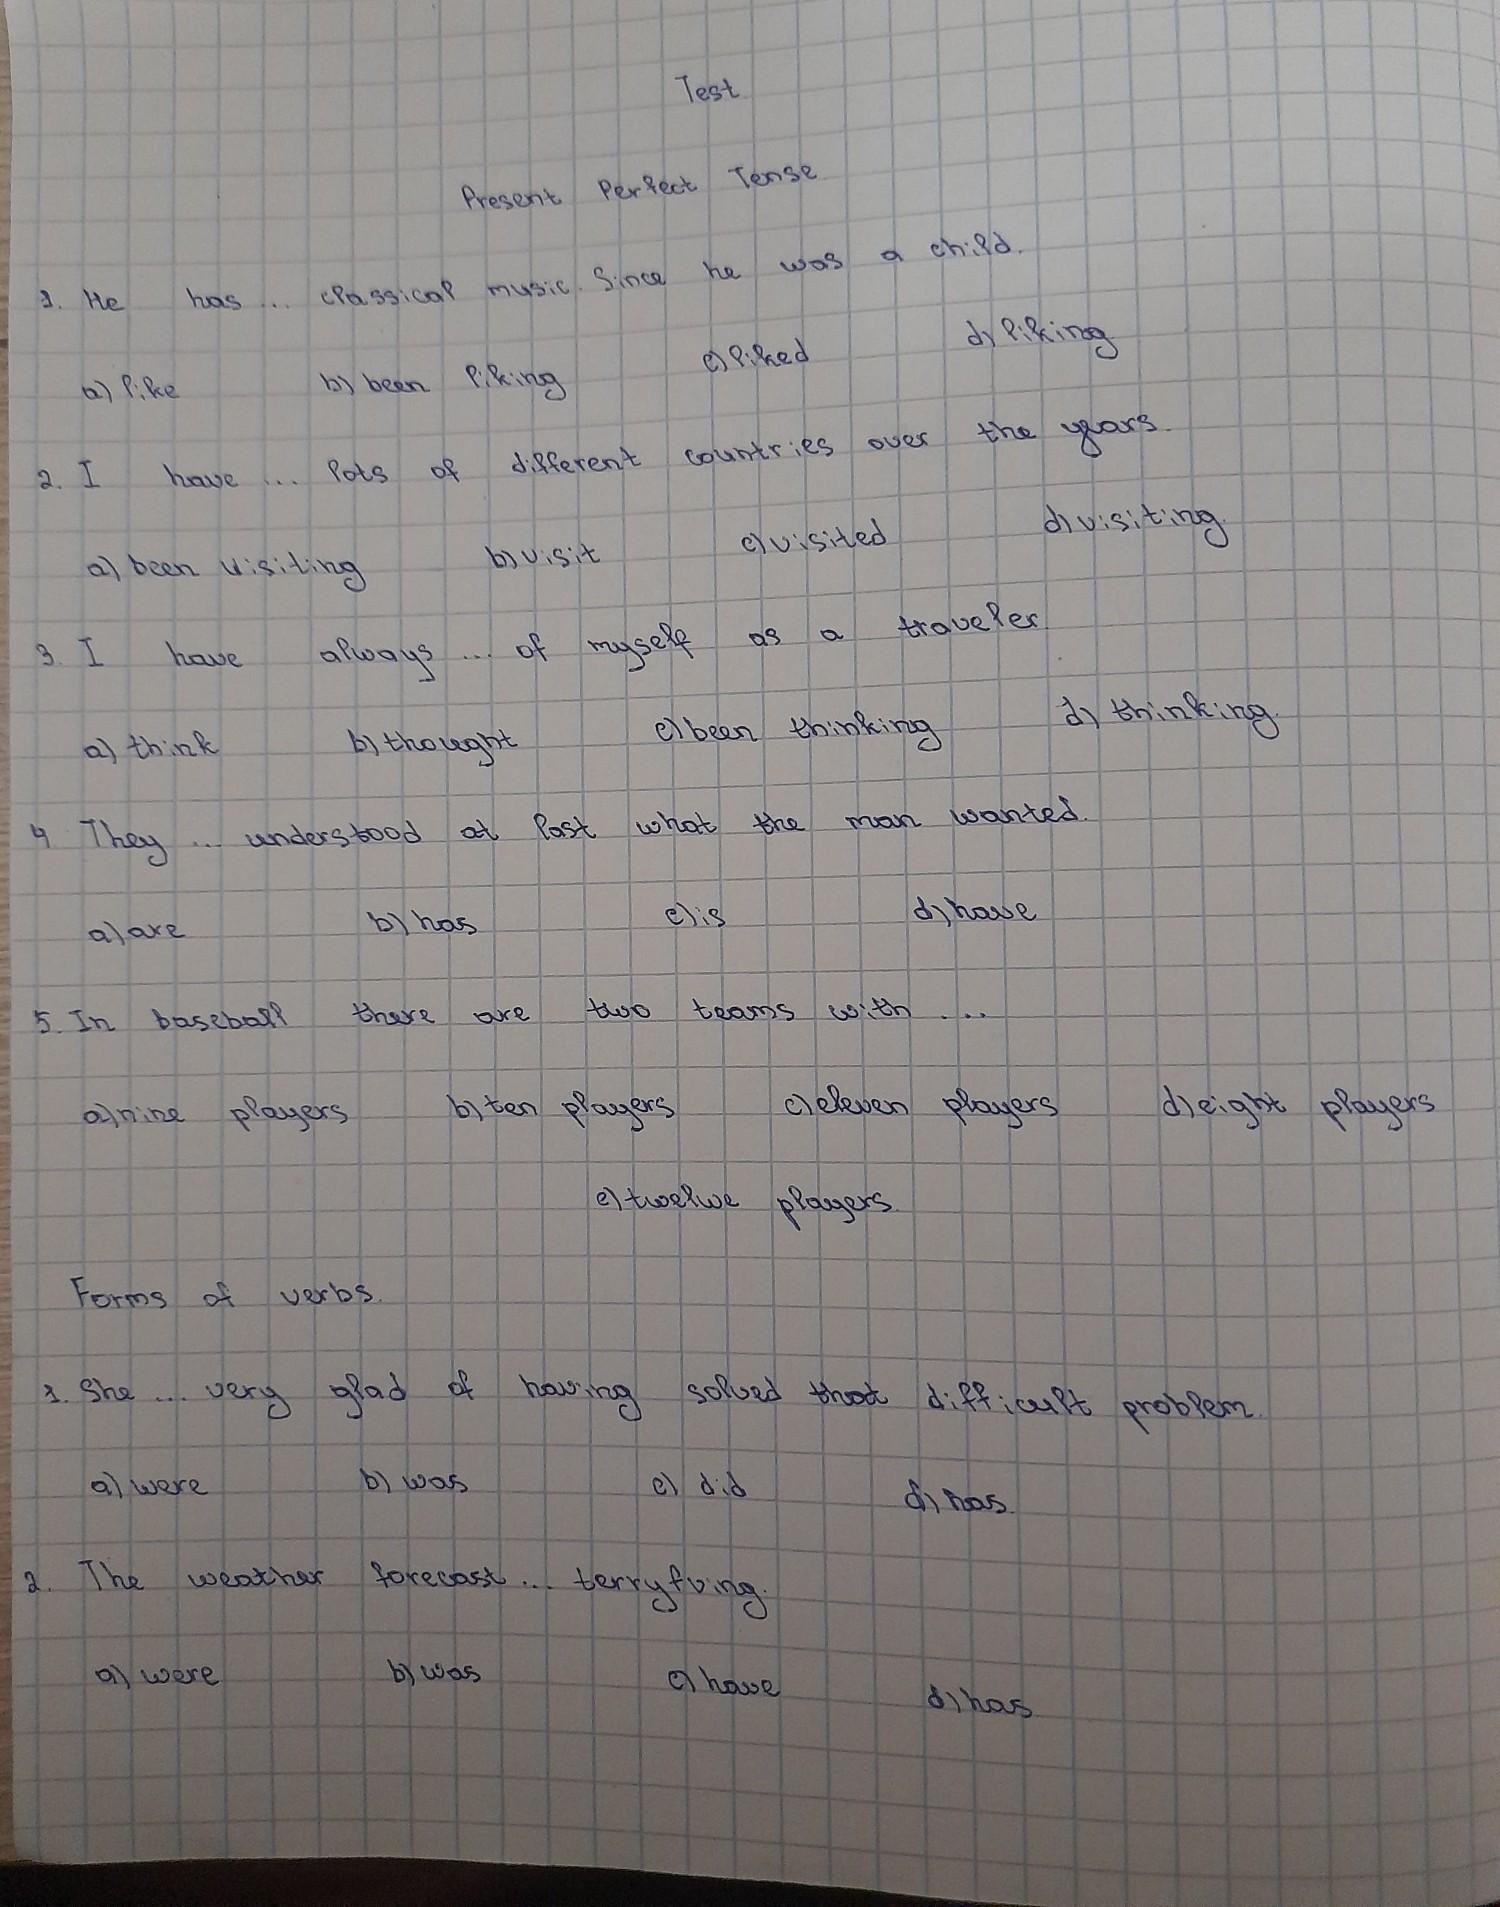 Test
Present Perfect Tense
1. He has ... classical music. Since he was a child.
a) like b) been liking c) liked d) liking
2. I have ... lots of different countries over the years.
a) been visiting b) visit c) visited d) visiting.
3. I have always ... of myself as a traveler.
a) think b) thought c) been thinking d) thinking.
4 They ... understood at last what the man wanted.
a) are b) has c) is d) have
5. In baseball there are two teams with ...
a) nine players b) ten players c) eleven players d) eight players
e) twelve players.
Forms of verbs.
1. She ... very glad of having solved that difficult problem.
a) were b) was c) did d) has.
2. The weather forecast ... terryfving.
a) were b) was c) have d) has